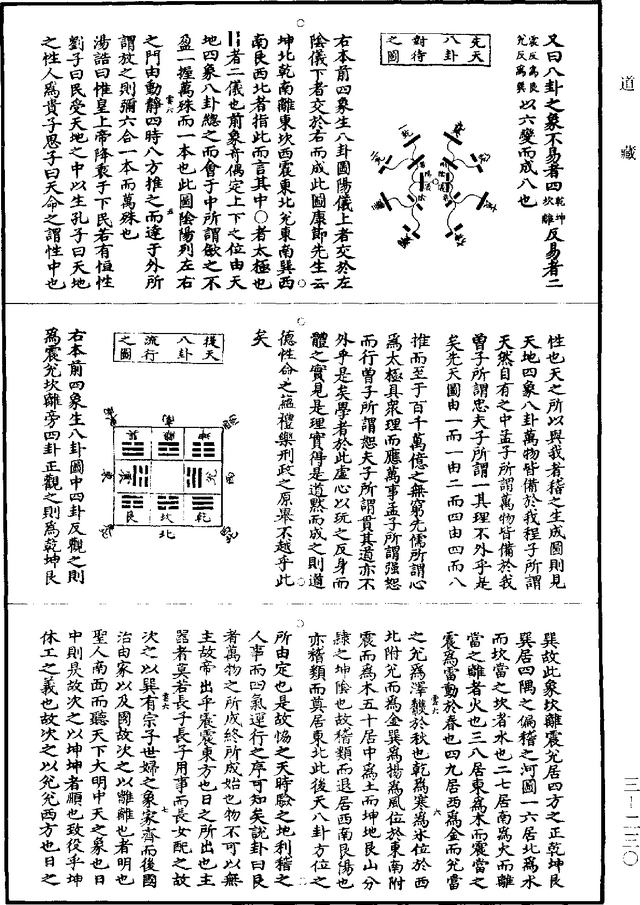 道藏
又曰八卦之象不易者四乾坤坎離反易者二
震反爲艮兌反爲巽以六變而成八也
先天
八卦
對待
之圖
右本前四象生八卦圖陽儀上者交於左
陰儀下者交於右而成此圖康節先生云
坤北乾南離東坎西震東北兌東南巽西
南艮西北者指此而言其中○者太極也
者二儀也前象奇偶定上下之位由天
地四象八卦總之而會于中所謂斂之不
盈一握萬殊而一本也此圖陰陽列左右
之門由動靜四時八方推之而達于外所
謂放之則彌六合一本而萬殊也
湯誥曰惟皇上帝降衷于下民若有恒性
劉子曰民受天地之中以生孔子曰天地
之性人爲貴子思子曰天命之謂性中也
性也天之所以與我者稽之生成圖則見
天地四象八卦萬物皆備於我程子所謂
天然自有之中孟子所謂萬物皆備於我
曾子所謂忠夫子所謂一其理不外乎是
矣先天圖由一而一由二而四由四而八
推而至于百千萬億之無窮先儒所謂心
爲太極具衆理而應萬事孟子所謂强恕
而行曾子所謂恕夫子所謂貫其道亦不
外乎是矣學者於此虛心以玩之反身而
體之實見是理實得是道默而成之則道
德性命之蘊禮樂刑政之原畢不越乎此
矣
後天
八卦
流行
之圖
兌
艮
坎
乾
北
右本前四象生八卦圖中四卦反觀之則
爲震兌坎離旁四卦正觀之則爲乾坤艮
巽故此象坎離震兌居四方之正乾坤艮
巽居四隅之偏稽之河圖一六居北爲水
而坎當之坎者水也二七居南爲火而離
當之離者火也三八居東爲木而震當之
震爲雷動於春也四九居西爲金而兌當
之兌爲澤於秋也乾爲寒爲冰位於西
北附兌而爲金巽爲揚爲風位於東南附
震而爲木五十居中爲土而坤地艮山分
隸之坤陰也故稽類而退居西南艮陽也
亦稽類而莫居東北此後天八卦方位之
所由定也是故恊之天時驗之地利稽之
人事而四氣運行之序可知矣說卦曰艮
者萬物之所成終所成始也物不可以無
主故帝出乎震震東方也日之所出也主
器者莫若長子長子用事而長女配之故
次之以巽有宗子世婦之象家齊而後國
治由家以及國故次之以離離也者明也
聖人南面而聽天下大明中天之象也日
中則昃故次之以坤坤者順也致役乎坤
休工之義也故次之以兌兌西方也日之
三—二三〇